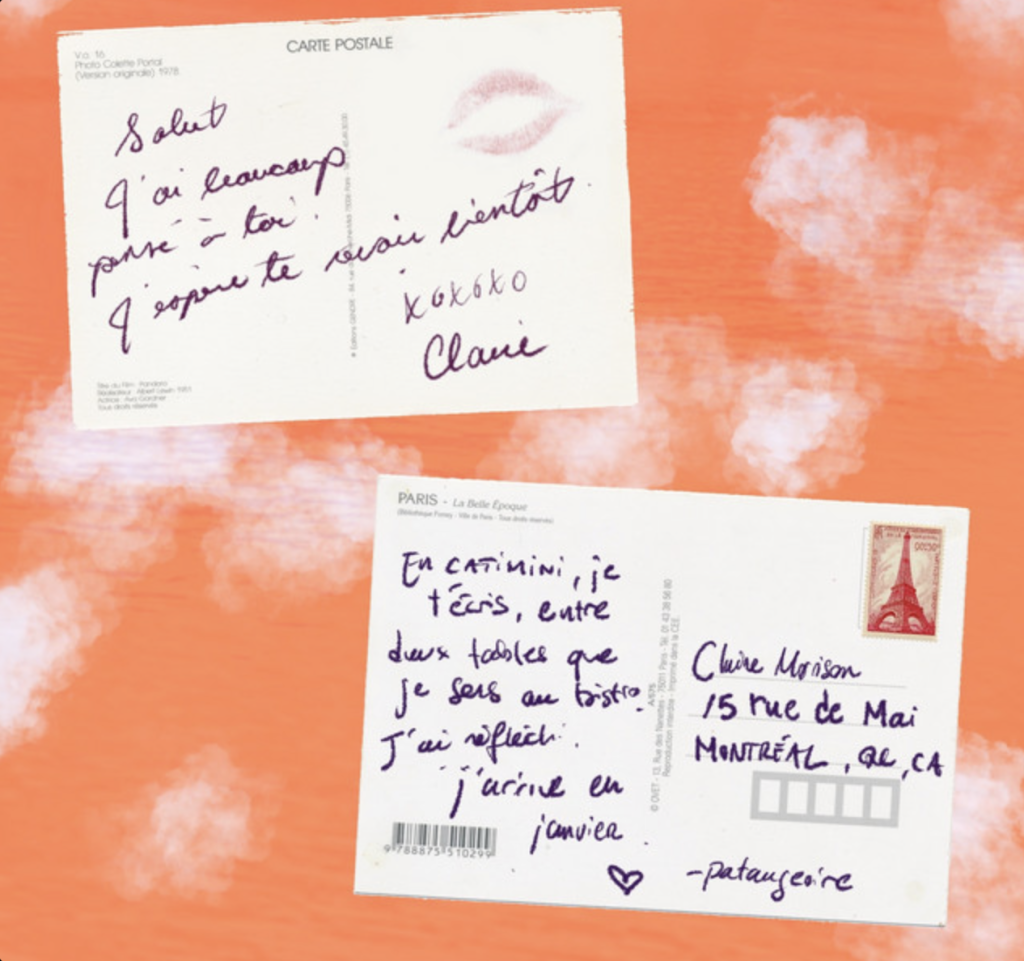 Vo. 16
Photo Colette Portal
(Version originale) 1978
CARTE POSTALE
Salut
J'ai beaucoup
pensé à toi.
J'espère te revoir bientôt.
xoxoxo
Claire
Titre du Film : Pandora
Réalisateur : Albert Lewin 1951
Actrice : Ava Gardner
Tous droits réservés
PARIS - La Belle Époque
(Bibliothèque Forney - Ville de Paris - Tous droits réservés)
En CATIMINI, je
t'écris, entre
deux tables que
je sers au bistro.
J'ai réfléchi.
j'arrive en
janvier.
9 788875 510299
A/575
© OVET - 13, Rue des Nanettes - 75011 Paris - Tél. 01 43 38 56 80
Reproduction interdite - Imprimé dans la CEE
Claire Morison
15 rue de Mai
MONTRÉAL, QC, CA
-pataugeoire